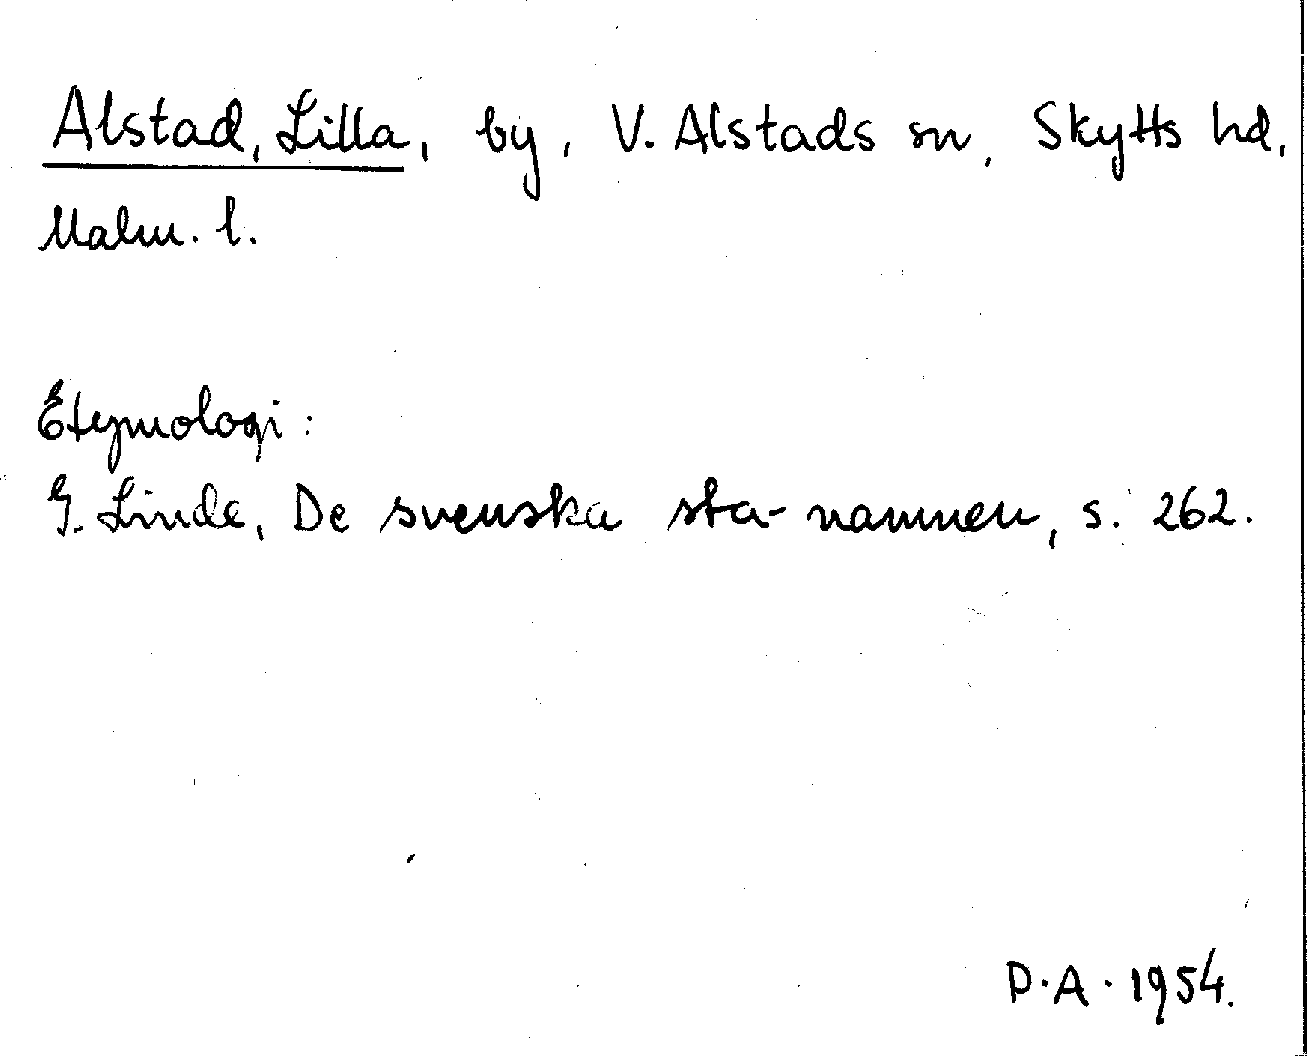 Alstad, Lilla, by, V. Alstads sn, Skytts hd,
Malm. l.
Etymologi:
G. Linde, De svenska sta-namnen, s. 262.
D.A. 1954.